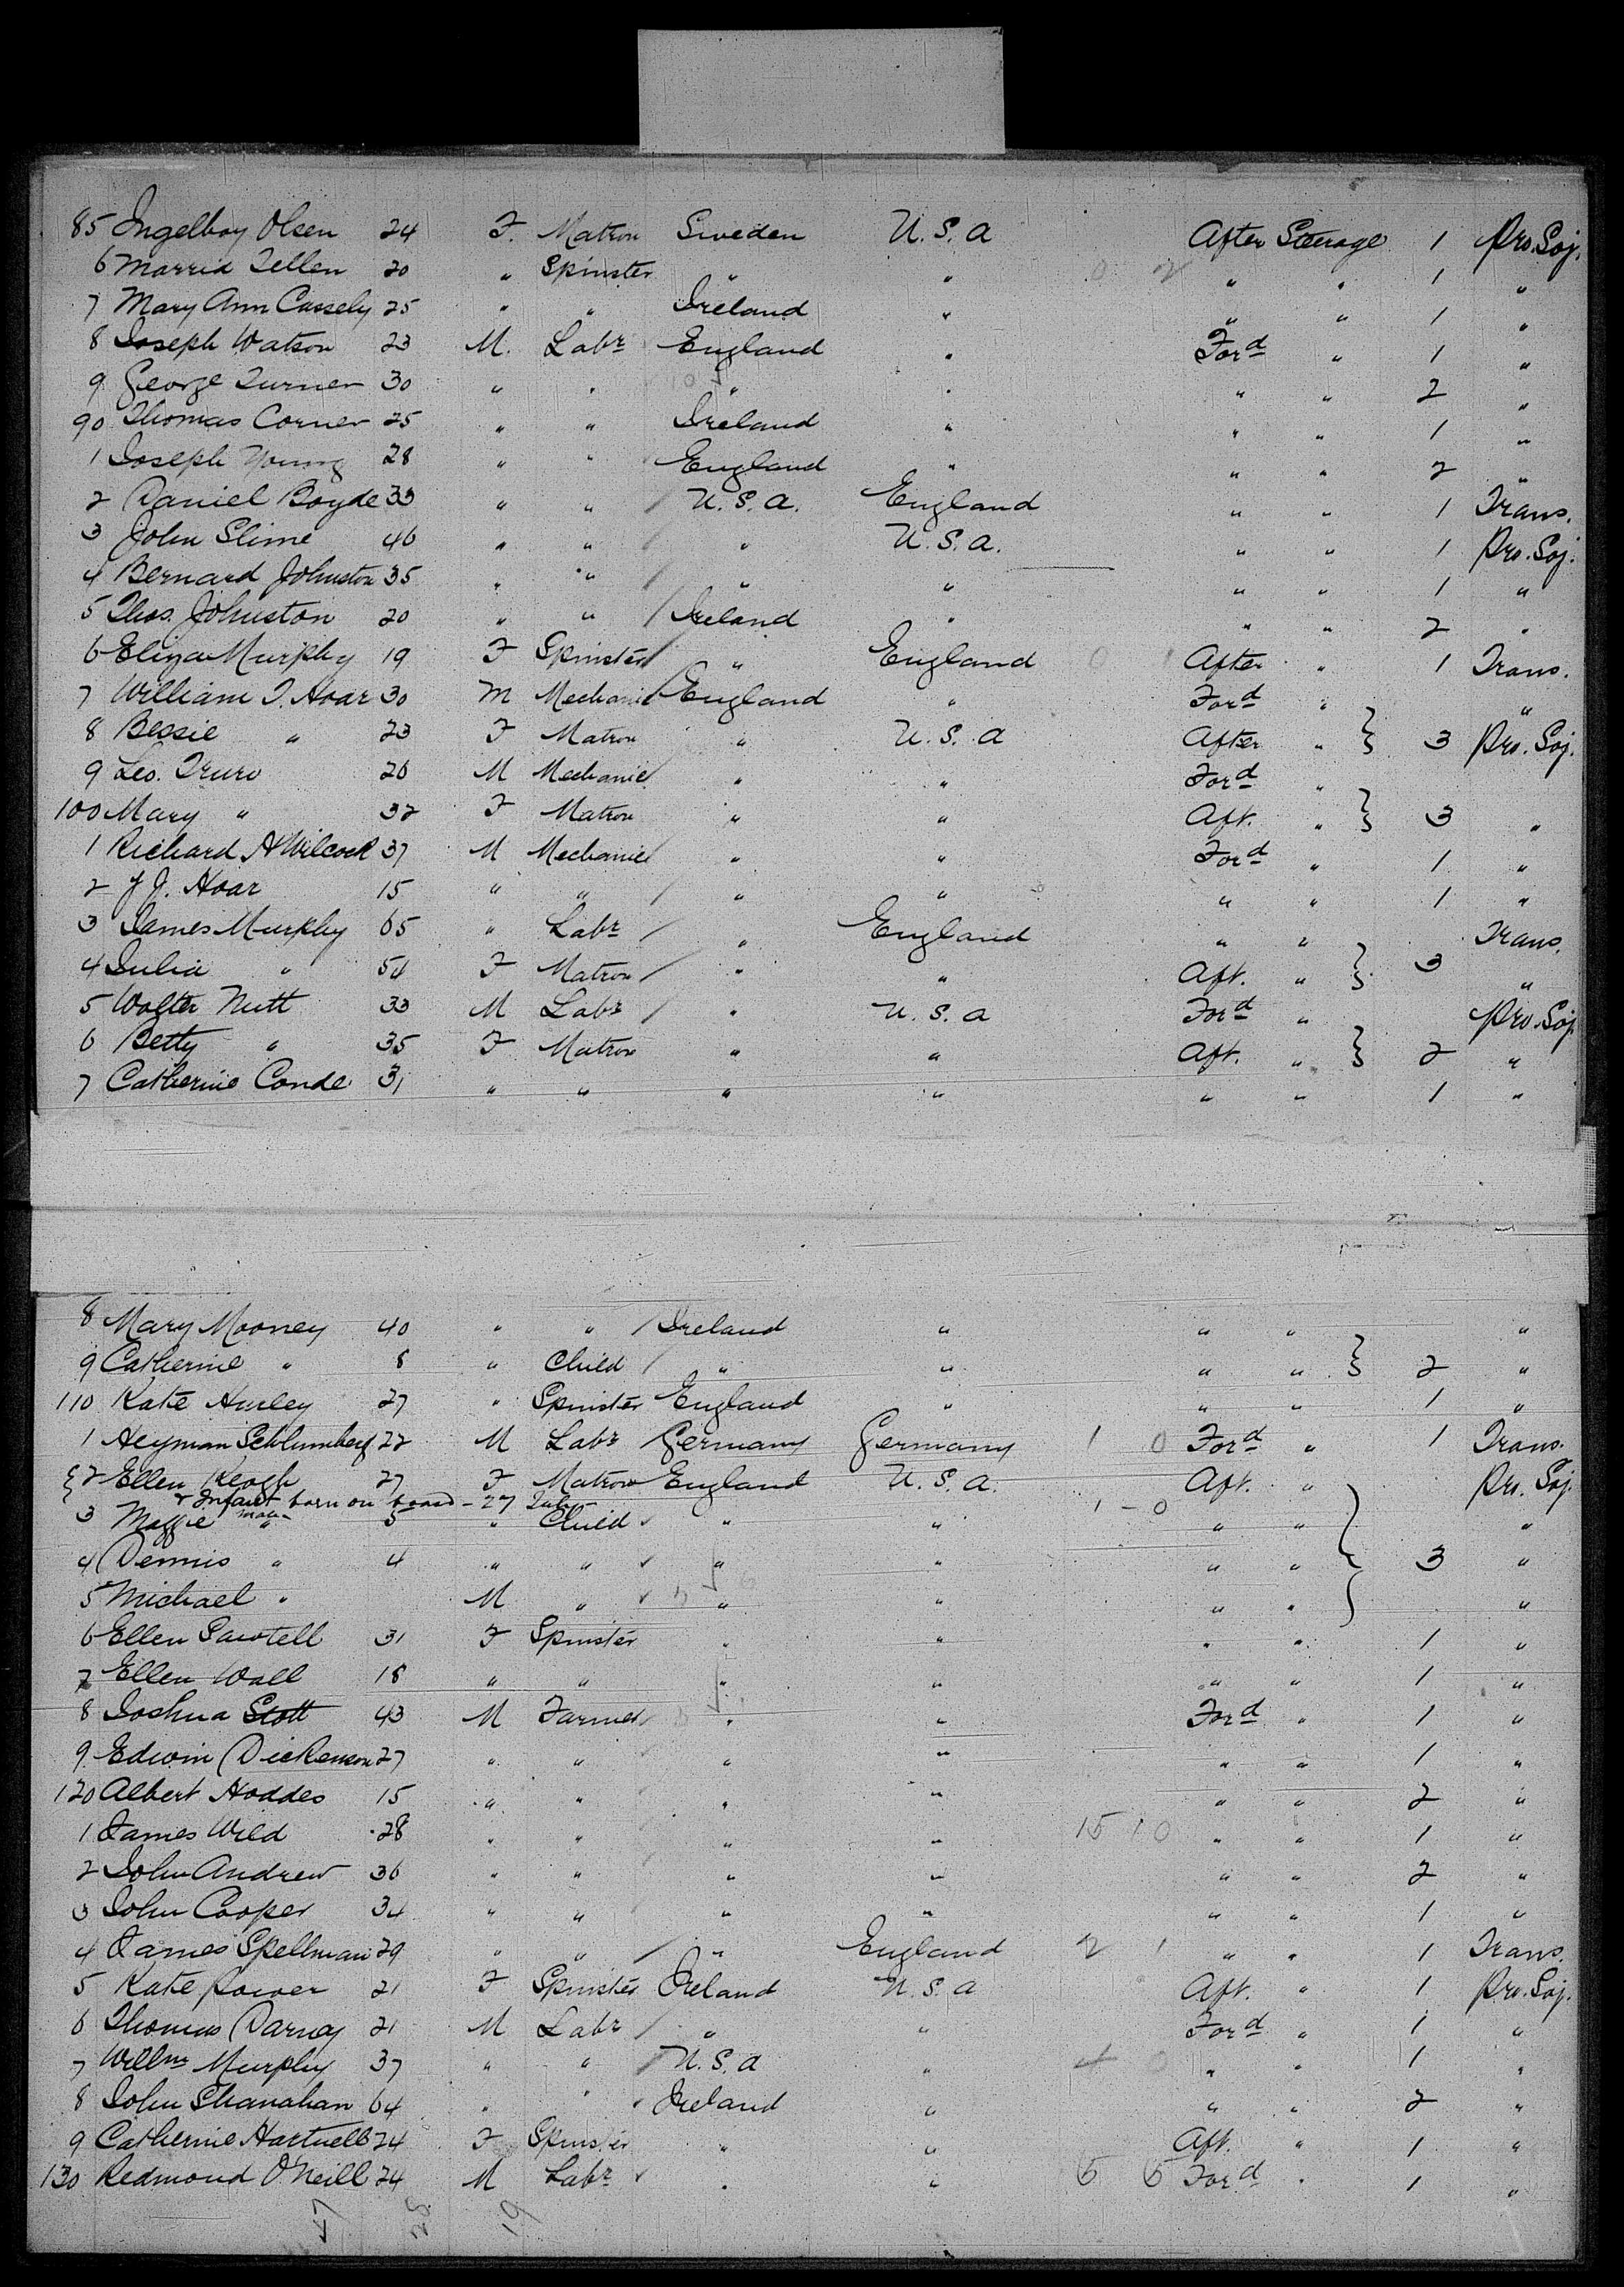 85 Ingelboy Olsen 24 F. Matron Sweden U.S.A After Steerage 1 Pro. Soj.
6 Tellen 20 " Spinster " " 0 2 " " 1 "
7 Mary Ann Cassely 25 " " Ireland " " " 1 "
8 Joseph Watson 23 M. Labr England " Ford " 1 "
9 George Turner 30 " " " " " " 2 "
90 Thomas Corner 25 " " Ireland " " " 1 "
1 Joseph Young 28 " " England " " " 2 "
2 Daniel Boyde 33 " " U.S.A. England " " 1 Trans.
3 John Slime 46 " " " U.S.A. " " 1 Pro. Soj.
4 Bernard Johnston 35 " " " " " " 1 "
5 Thos. Johnston 20 " " Ireland " " " 2 "
6 Eliza Murphy 19 F Spinster " England 0 After " 1 Trans.
7 William T. Hoar 30 M Mechanic England " Ford " "
8 Bessie " 23 F Matron " U.S.A After " } 3 Pro. Soj.
9 Leo. Truro 26 M Mechanic " " Ford "
100 Mary " 32 F Matron " " Aft. " } 3 "
1 Richard A Wilcock 37 M Mechanic " " Ford " 1 "
2 J J. Hoar 15 " " " " " " 1 "
3 James Murphy 65 " Labr " England " " Trans.
4 Julia " 54 F Matron " " Aft. " } 3 "
5 Walter Nutt 33 M Labr " U.S.A Ford " Pro. Soj
6 Betty " 35 F Matron " " Aft. " } 2 "
7 Catherine Conde 31 " " " " " " 1 "
8 Mary Mooney 40 " " Ireland " " " "
9 Catherine " 8 " Child " " " " } 2 "
110 Kate Hurley 27 " Spinster England " " " 1 "
1 Heyman Schlumberg 22 M Labr Germany Germany 1 0 Ford " 1 Trans.
{ 2 Ellen Keogh 27 F Matron England U.S.A. Aft. " Pro. Soj
& Infant born on board - 27 July - 1 - 0
male
3 Maggie " 5 " Child " " " " "
4 Dennis " 4 " " " " " " } 3 "
5 Michael " M " " " " " "
6 Ellen Sawtell 31 F Spinster " " " " 1 "
7 Ellen Wall 18 " " " " " " 1 "
8 Joshua Stott 43 M Farmer " " Ford " 1 "
9 Edwin Dickenson 27 " " " " " " 1 "
120 Albert Hoddes 15 " " " " " " 2 "
1 James Wild 28 " " " " 15 10 " " 1 "
2 John Andrew 36 " " " " " " 2 "
3 John Cooper 34 " " " " " " 1 "
4 James Spellman 29 " " " England 2 1 " " 1 Trans.
5 Kate Power 21 F Spinster Ireland U.S.A Aft. " 1 Pro. Soj.
6 Thomas Darnay 21 M Labr " " Ford " 1 "
7 Willm Murphy 37 " " U.S.A " 4 0 " " 1 "
8 John Shanahan 64 " " Ireland " " " 2 "
9 Catherine Hartnell 24 F Spinster " " Aft. " 1 "
130 Redmond O'Neill 24 M Labr " " 6 6 Ford " 1 "
47 28 19